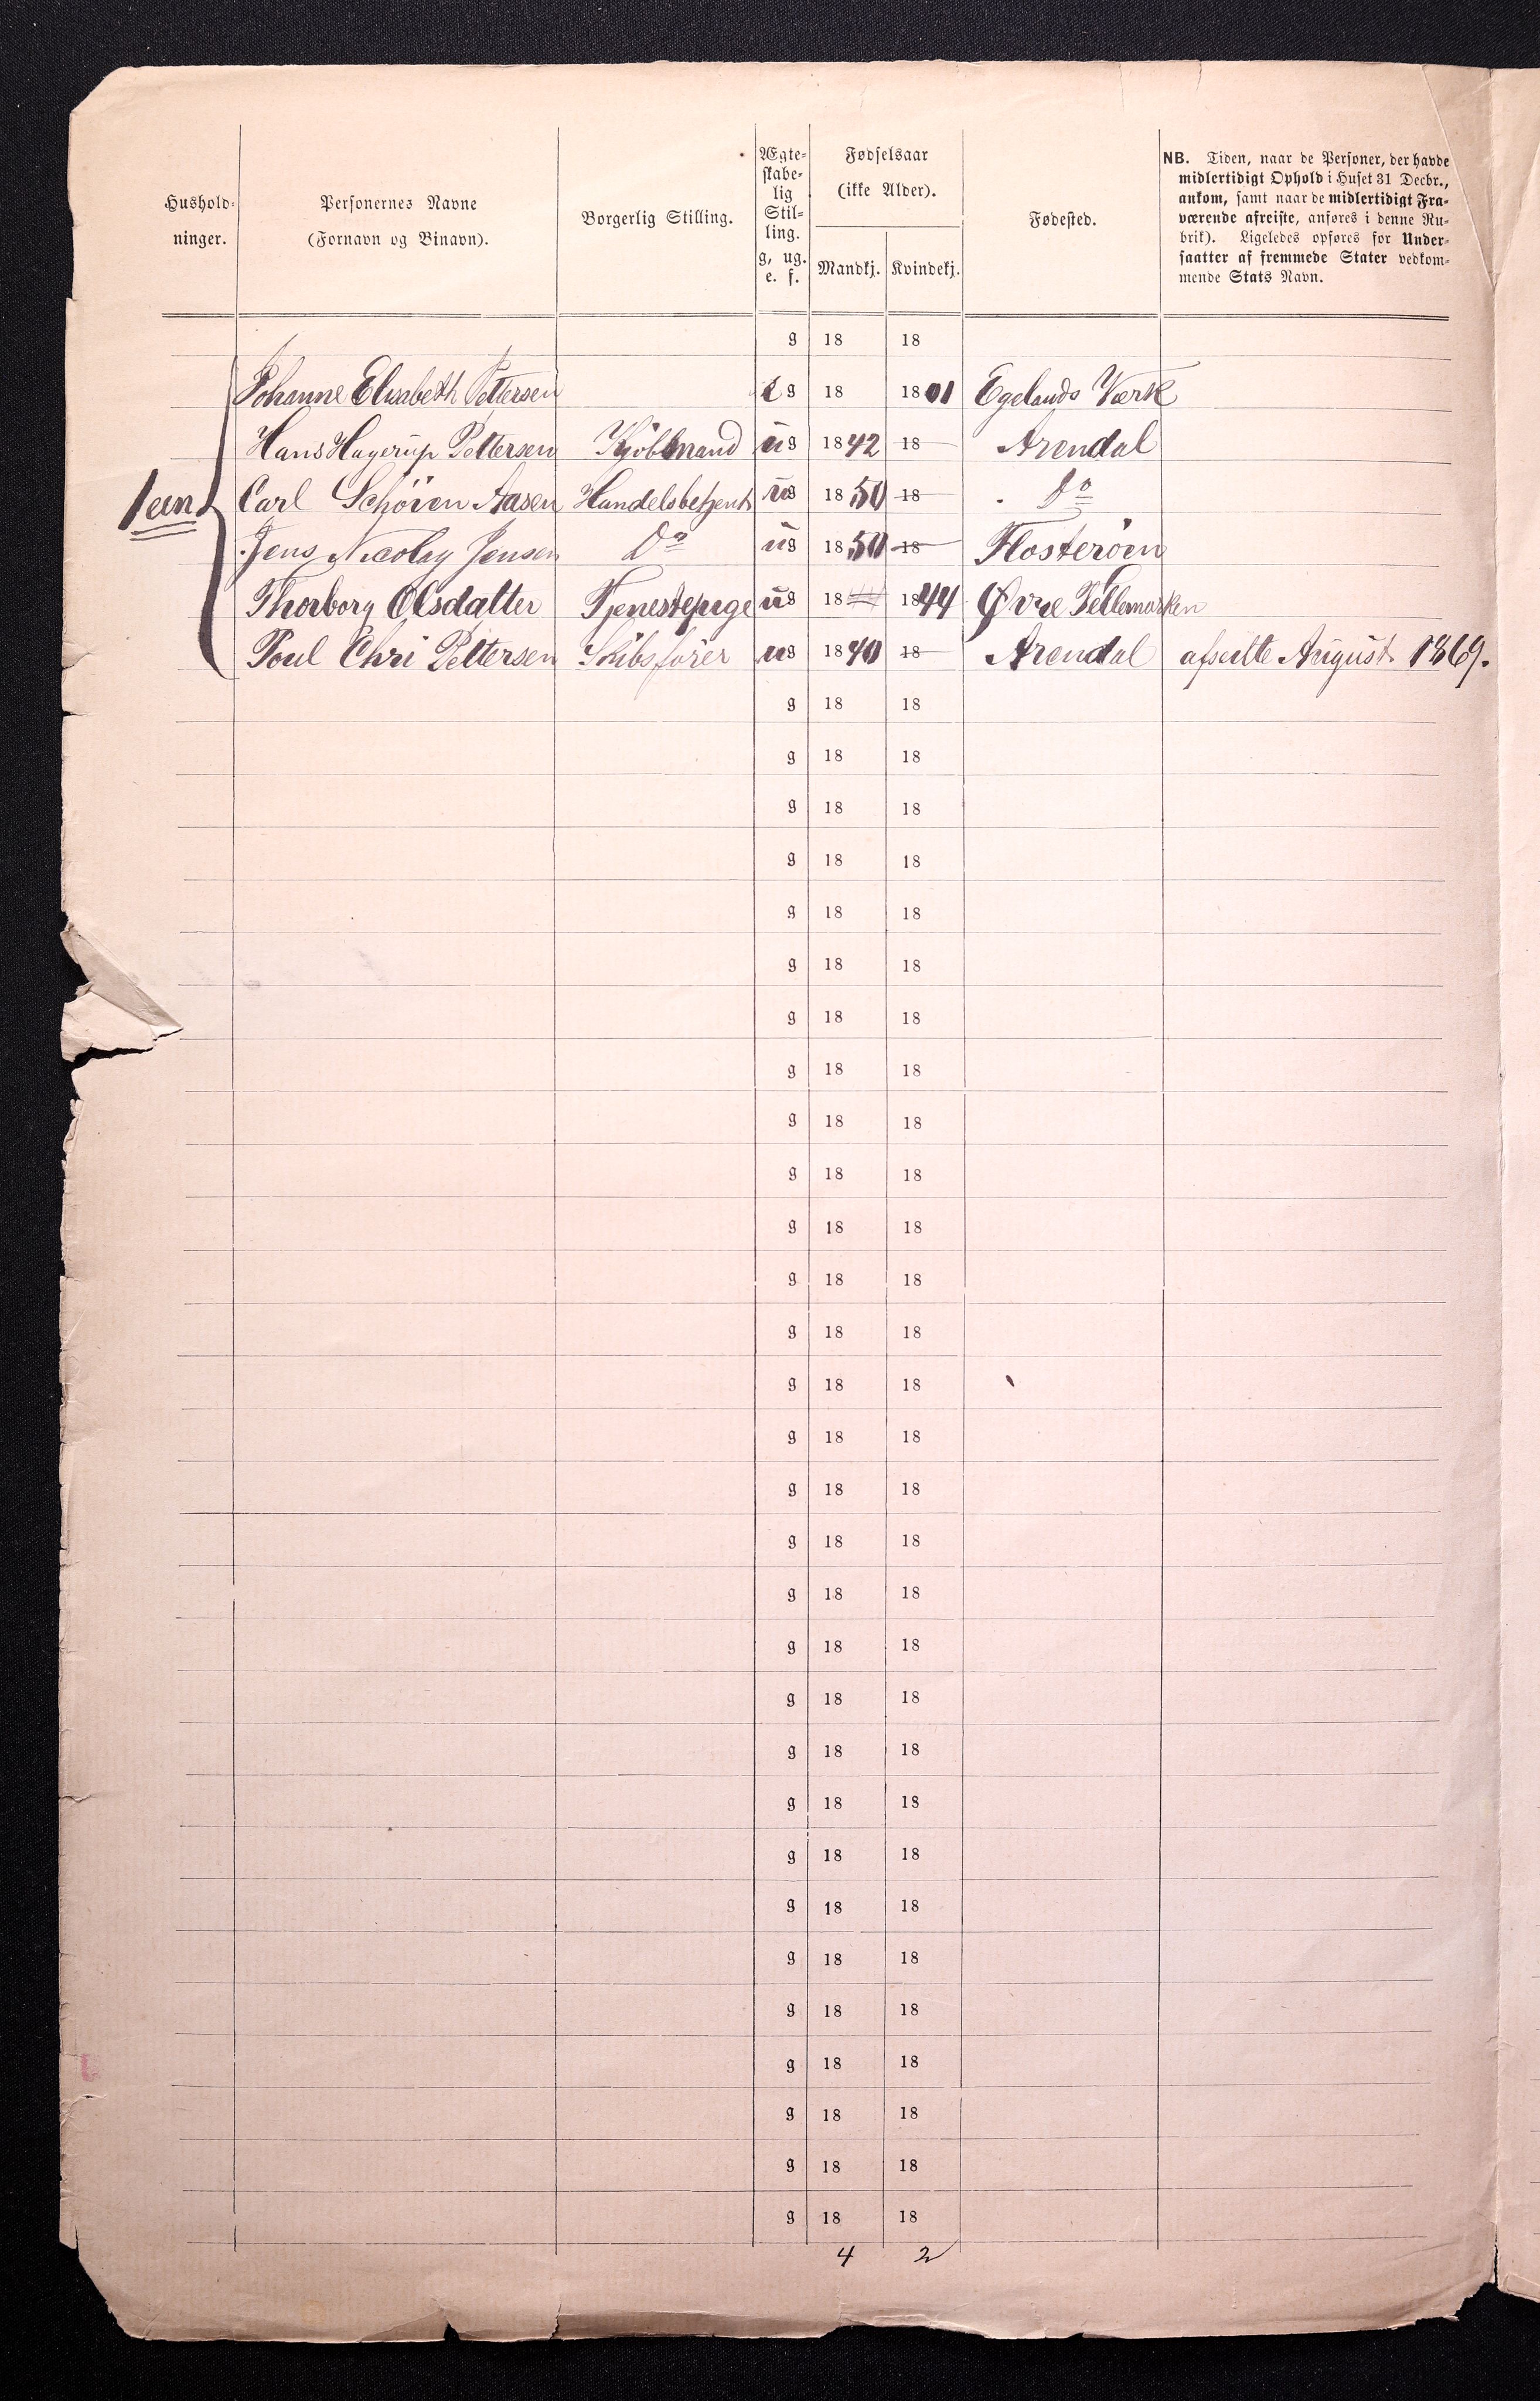 Hushold-
ninger.
Personernes Navne
(Fornavn og Binavn).
Borgerlig Stilling.
Ægte-
skabe-
lig
Stil-
ling.
g, ug.
e. f.
Fødselsaar
(ikke Alder).
Mandkj. Kvindekj.
Fødested.
NB. Tiden, naar de Personer, der havde
midlertidigt Ophold i Huset 31 Decbr.,
ankom, samt naar de midlertidigt Fra-
værende afreiste, anføres i denne Ru-
brik). Ligeledes opføres for Under-
saatter af fremmede Stater vedkom-
mende Stats Navn.
g 18 18
Johanne Elisabeth Pettersen g 18 1801 Egelands Værk
Hans Hagerup Pettersen Kjöbmand ug 1842 18 Arendal
1 een Carl Schöien Aasen Handelsbetjent ug 1850 18 Do
Jens Nicolay Jensen Do ug 1850 18 Flosteröen
Thorborg Olsdatter Tjenestepige ug 18 1844 Øvre Tellemarken
Poul Chri Pettersen Skibsfører ug 1840 18 Arendal afseilte August 1869.
g 18 18
g 18 18
g 18 18
g 18 18
g 18 18
g 18 18
g 18 18
g 18 18
g 18 18
g 18 18
g 18 18
g 18 18
g 18 18
g 18 18
g 18 18
g 18 18
g 18 18
g 18 18
g 18 18
g 18 18
g 18 18
g 18 18
g 18 18
g 18 18
g 18 18
g 18 18
g 18 18
g 18 18
g 18 18
g 18 18
4 2